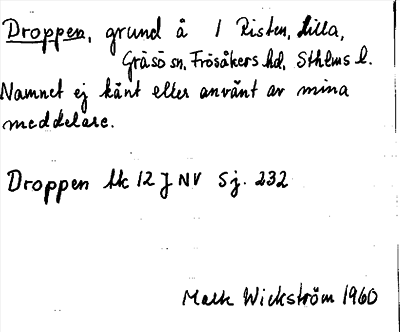 Droppen, grund å / Risten, Lilla,
Gräsö sn, Frösåkers hd, Sthlms l.
Namnet ej känt eller använt av mina
meddelare.
Droppen bk 12 J NV Sj. 232
Malte Wickström 1960